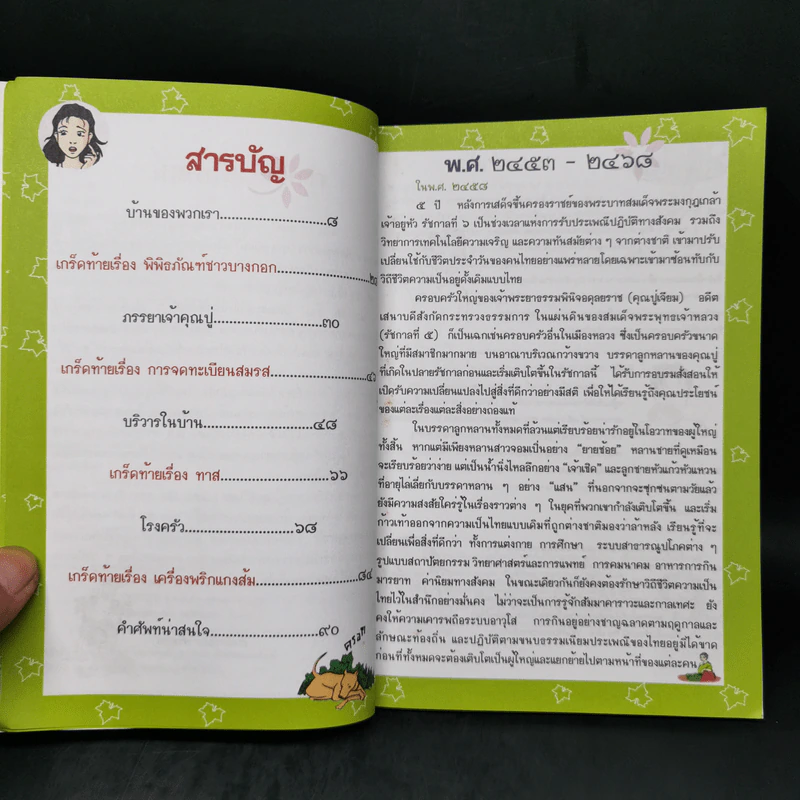 สารบัญ
บ้านของพวกเรา..........................๘
เกร็ดท้ายเรื่อง พิพิธภัณฑ์ชาวบางกอก..............๒๘
ภรรยาเจ้าคุณปู่........................๓๐
เกร็ดท้ายเรื่อง การจดทะเบียนสมรส...............๔๖
บริวารในบ้าน......................๔๘
เกร็ดท้ายเรื่อง ทาส................๖๖
โรงครัว......................๖๘
เกร็ดท้ายเรื่อง เครื่องพริกแกงส้ม...............๘๔
คำศัพท์น่าสนใจ...............๙๐
ครอก
พ.ศ. ๒๔๕๓ - ๒๔๖๘
ในพ.ศ. ๒๔๕๘
๕ ปี หลังการเสด็จขึ้นครองราชย์ของพระบาทสมเด็จพระมงกุฎเกล้า
เจ้าอยู่หัว รัชกาลที่ ๖ เป็นช่วงเวลาแห่งการรับประเพณีปฏิบัติทางสังคม รวมถึง
วิทยาการเทคโนโลยีความเจริญ และความทันสมัยต่าง ๆ จากต่างชาติ เข้ามาปรับ
เปลี่ยนใช้กับชีวิตประจำวันของคนไทยอย่างแพร่หลายโดยเฉพาะเข้ามาซ้อนทับกับ
วิถีชีวิตความเป็นอยู่ดั้งเดิมแบบไทย
ครอบครัวใหญ่ของเจ้าพระยาธรรมพินิจอดุลยราช (คุณปู่เจียม) อดีต
เสนาบดีสังกัดกระทรวงธรรมการ ในแผ่นดินของสมเด็จพระพุทธเจ้าหลวง
(รัชกาลที่ ๕) ก็เป็นเฉกเช่นครอบครัวอื่นในเมืองหลวง ซึ่งเป็นครอบครัวขนาด
ใหญ่ที่มีสมาชิกมากมาย บนอาณาบริเวณกว้างขวาง บรรดาลูกหลานของคุณปู่
ที่เกิดในปลายรัชกาลก่อนและเริ่มเติบโตขึ้นในรัชกาลนี้ ได้รับการอบรมสั่งสอนให้
เปิดรับความเปลี่ยนแปลงไปสู่สิ่งที่ดีกว่าอย่างมีสติ เพื่อให้ได้เรียนรู้ถึงคุณประโยชน์
ของแต่ละเรื่องแต่ละสิ่งอย่างถ่องแท้
ในบรรดาลูกหลานทั้งหมดที่ล้วนแต่เรียบร้อยน่ารักอยู่ในโอวาทของผู้ใหญ่
ทั้งสิ้น หากแต่มีเพียงหลานสาวจอมเป็นอย่าง "ยายช้อย" หลานชายที่ดูเหมือน
จะเรียบร้อยว่าง่าย แต่เป็นน้ำนิ่งไหลลึกอย่าง "เจ้าเชิด" และลูกชายหัวแก้วหัวแหวน
ที่อายุไล่เลี่ยกับบรรดาหลาน ๆ อย่าง "แสน" ที่นอกจากจะซุกซนตามวัยแล้ว
ยังมีความสงสัยใคร่รู้ในเรื่องราวต่าง ๆ ในยุคที่พวกเขากำลังเติบโตขึ้น และเริ่ม
ก้าวเท้าออกจากความเป็นไทยแบบเดิมที่ถูกต่างชาติมองว่าล้าหลัง เรียนรู้ที่จะ
เปลี่ยนเพื่อสิ่งที่ดีกว่า ทั้งการแต่งกาย การศึกษา ระบบสาธารณูปโภคต่าง ๆ
รูปแบบสถาปัตยกรรม วิทยาศาสตร์และการแพทย์ การคมนาคม อาหารการกิน
มารยาท ค่านิยมทางสังคม ในขณะเดียวกันก็ยังคงต้องรักษาวิถีชีวิตความเป็น
ไทยไว้ในสำนึกอย่างมั่นคง ไม่ว่าจะเป็นการรู้จักสัมมาคาราวะและกาลเทศะ ยัง
คงให้ความเคารพถือระบบอาวุโส การกินอยู่อย่างชาญฉลาดตามฤดูกาลและ
ลักษณะท้องถิ่น และปฏิบัติตามขนบธรรมเนียมประเพณีของไทยอยู่มิได้ขาด
ก่อนที่ทั้งหมดจะต้องเติบโตเป็นผู้ใหญ่และแยกย้ายไปตามหน้าที่ของแต่ละคน